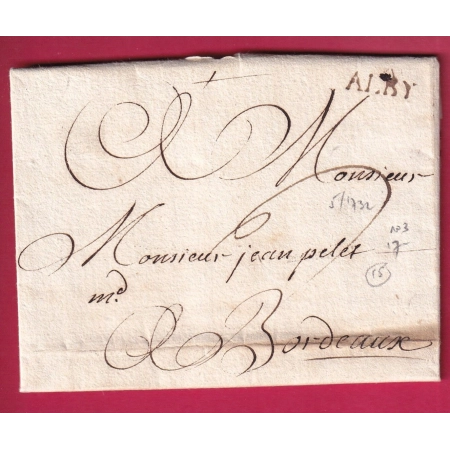 ALBY
A Monsieur
5/1732
Monsieur jean pelet
n°3
17-
md
15
A Bordeaux